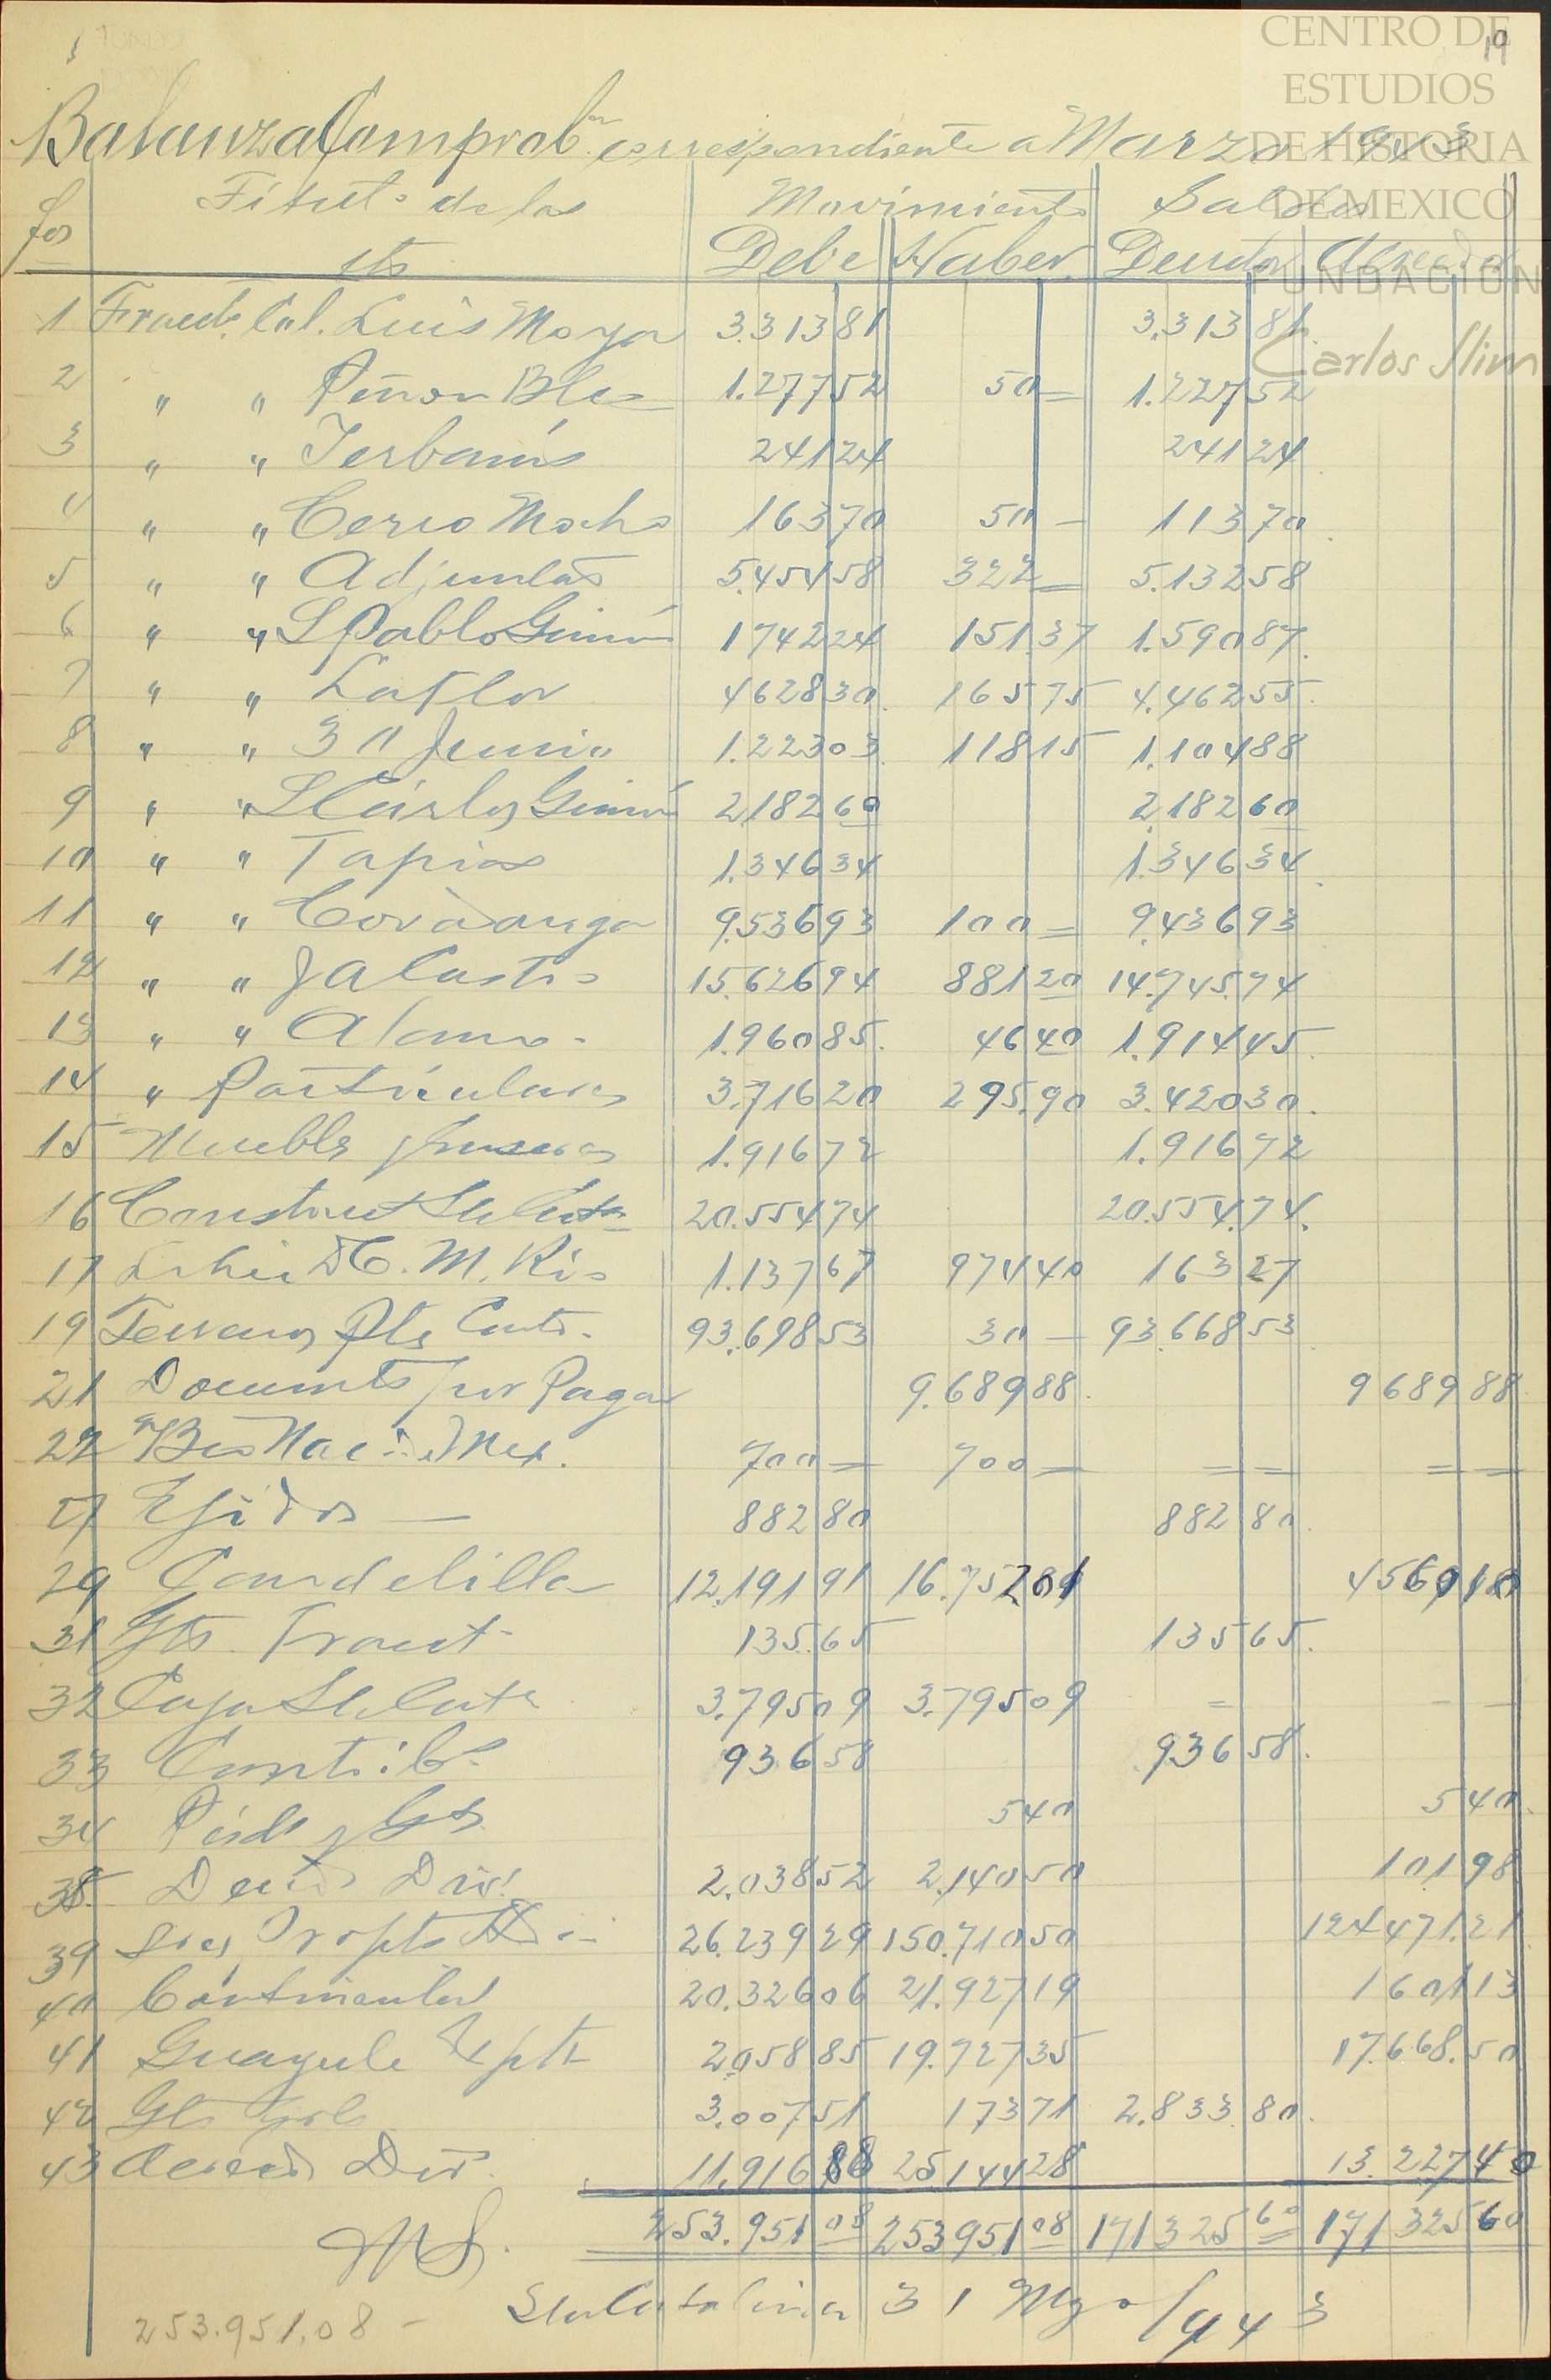 19
CENTRO DE
ESTUDIOS
DE HISTORIA
DE MEXICO
FUNDACION
Carlos Slim
Balanza Comprobon correspondiente a Marzo 1943
Fos Titulos de las Movimiento Saldos
cts Debe Haber Deudor Acreedor
1 Fracc. Col. Luis Moya 3.313 81 3.313 81
2 " " Peñon Blco 1.277 52 50 = 1.227 52
3 " " Yerbanis 241 24 241 24
4 " " Cerro Mocho 163 70 50 - 113 70
5 " " Adjuntas 5.454 58 322 = 5.132 58
6 " " S Pablo Gimn 1742 24 151.37 1.590 87
7 " " La Flor 4628 30 165 75 4.462 55
8 " " 30 Junio 1.223 03 118 15 1.104 88
9 " " S Cárlos Gimn 2182 60 2182 60
10 " " Tapias 1.346 34 1.346 34
11 " " Covadonga 9.536 93 100 = 9.436 93
12 " " J A Castro 15.626 94 881 20 14.745.74
13 " " Alamo - 1.960 85 46 40 1.914 45
14 " Particulares 3.716 20 295.90 3.420 30
15 Muebles y Enseres 1.916 72 1.916 72
16 Construct Sta Cata 20.554 74 20.554.74
17 D C. M. Rio 1.137 67 974 40 163 27
19 Terrenos Ptes Conts. 93.698 53 30 - 93.668 53
21 Documts por Pagar 9.689 88 9689 88
22 " Bco Nac. d Mex. 700 = 700 = = = = =
27 Ejidos — 882 80 882 80
29 Candelilla 12.191 91 16.752 01 4560 10
31 Gts. Fract - 135.65 135 65
32 Caja Sta Cata 3.795 09 3.795 09 - - -
33 Contribs 936 58 936 58
34 Pérds y Gs 5 40 5 40
38 Deuds Divs 2.038 52 2.140 50 101 98
39 26.239 29 150.710 50 124 471.21
40 Continental 20.326 06 21.927 19 1601 13
41 Guayule Expt 2.058 85 19.727 35 17.668.50
42 Gts Grls 3.007 51 173 71 2.833.80
43 Acreeds Div. 11.916 88 25.144 28 13.227 40
253.951 08 253951 08 171325 60 171325 60
Sta Catalina 31 Mzo/943
253.951.08 -